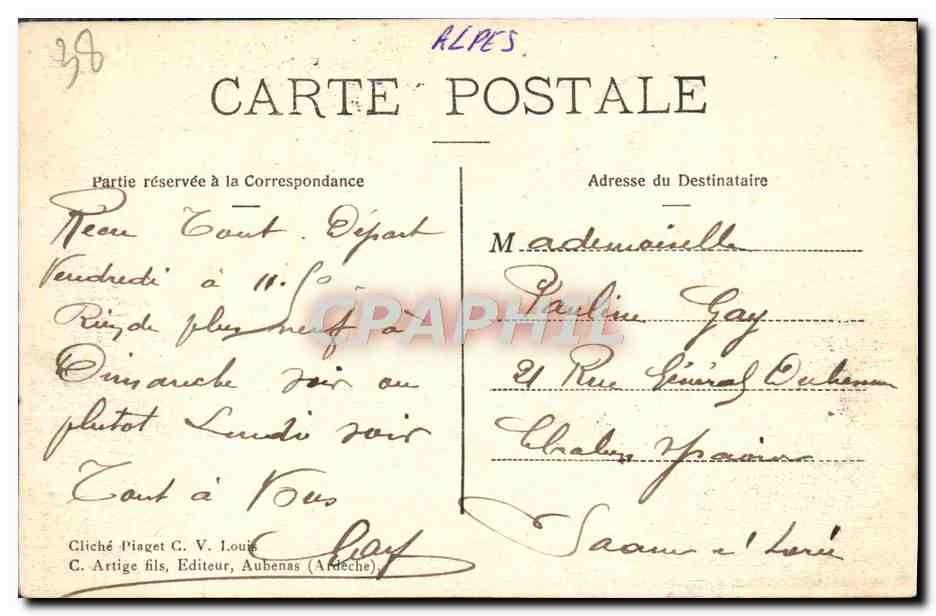 38
ALPES
CARTE POSTALE
Partie réservée à la Correspondance
Reçu Tout. Départ
Vendredi à 11.50
Rien de plus neuf à
Dimanche soir ou
plutot Lundi soir
Tout à Vous
Gay
Cliché Piaget C. V. Louis
C. Artige fils, Editeur, Aubenas (Ardèche)
Adresse du Destinataire
Mademoiselle
Pauline Gay
21 Rue Général Duhesme
Chalon s/ Saône
Saone & Loire
CPAPHIL